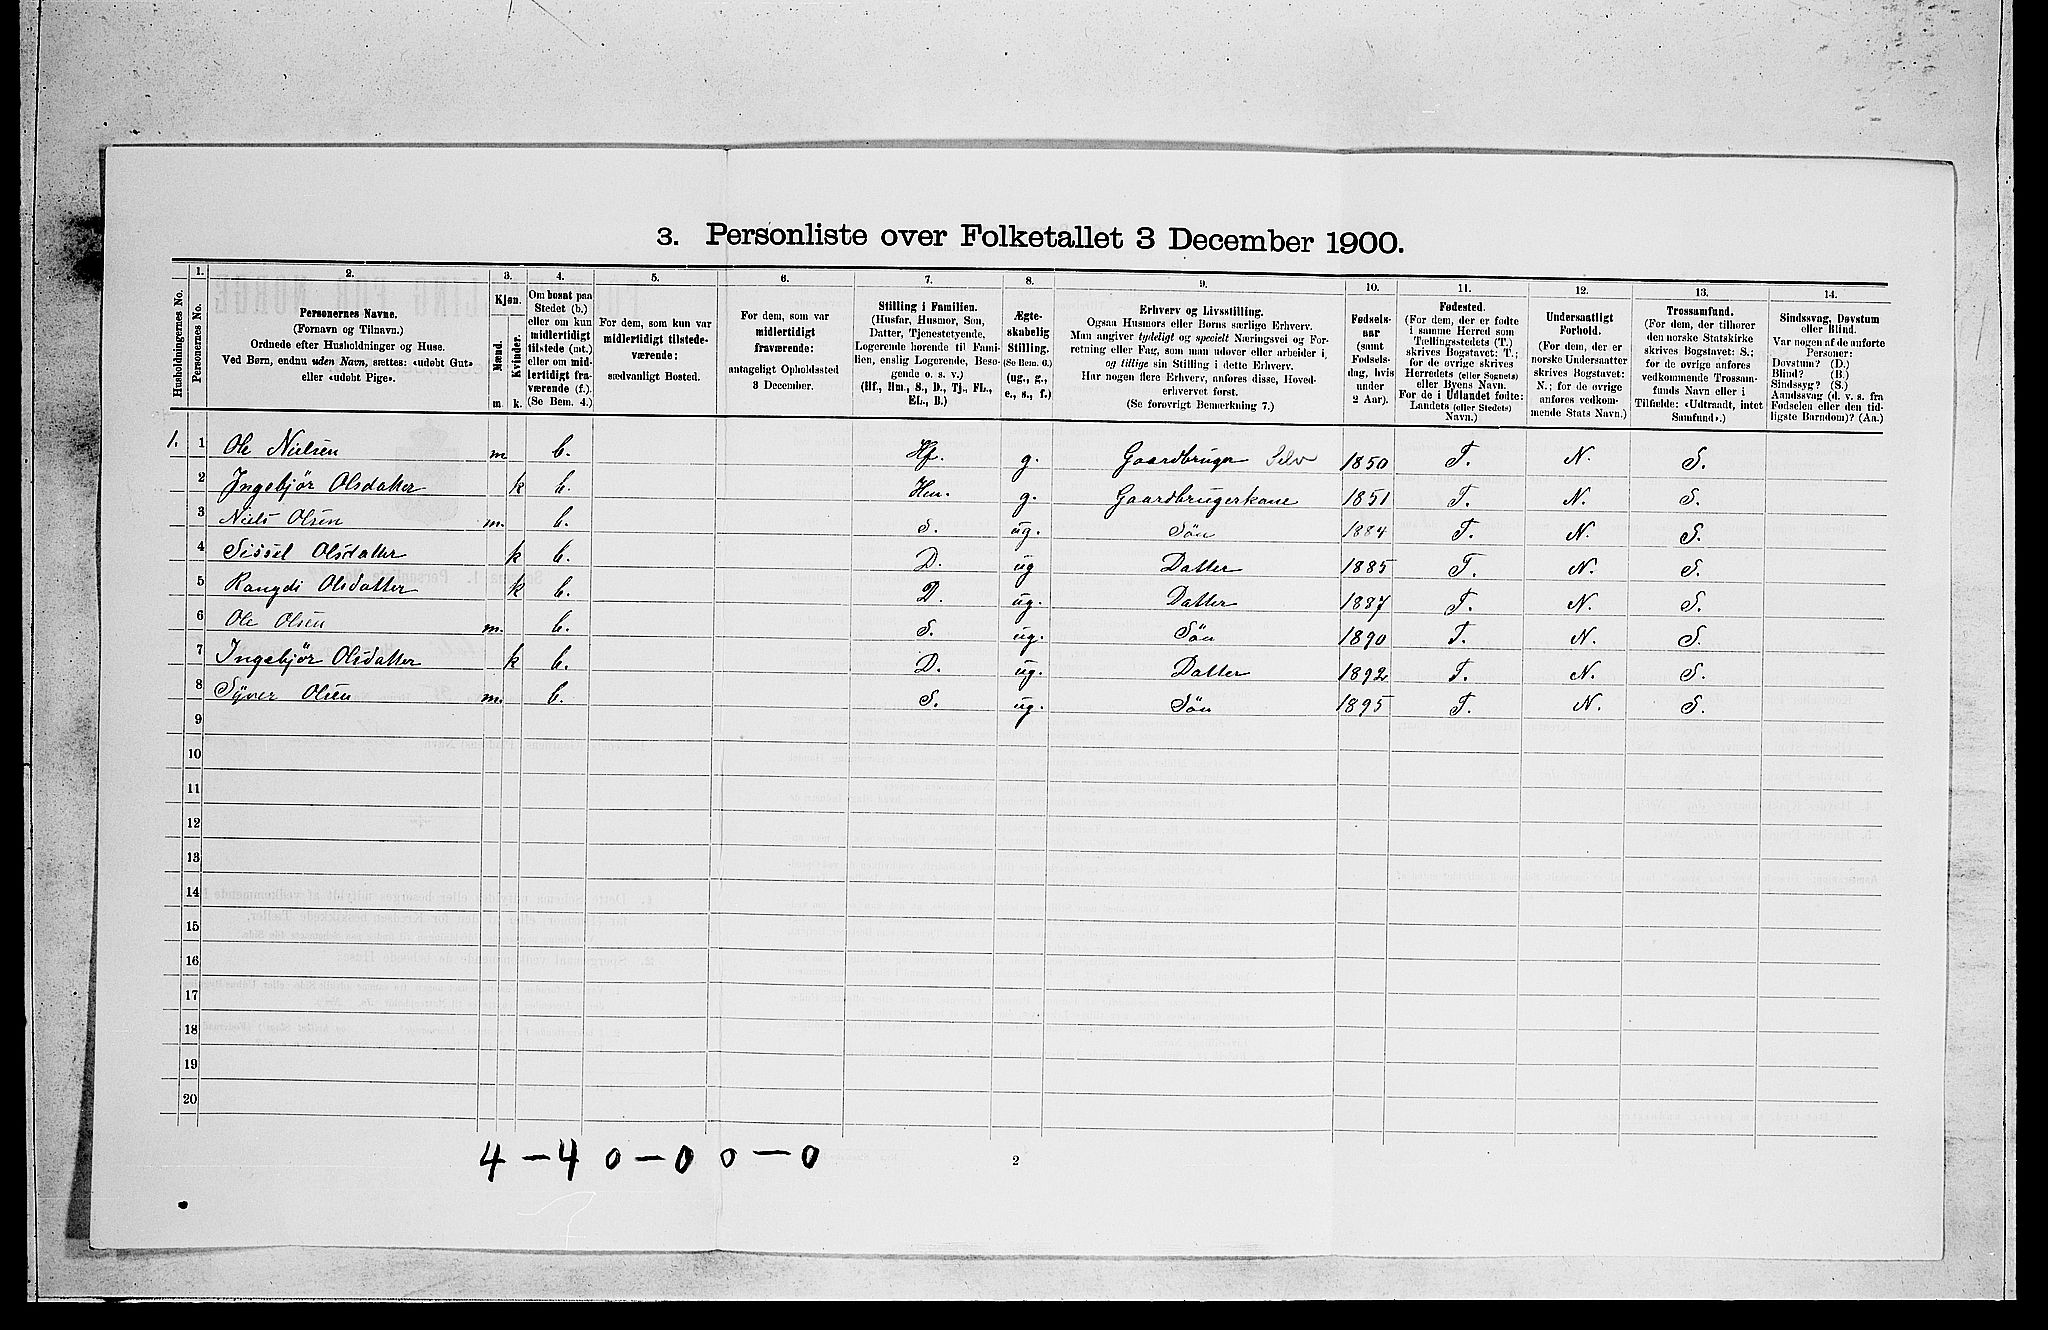 3. Personliste over Folketallet 3 December 1900.
1. 2. 3. 4. 5. 6. 7. 8. 9. 10. 11. 12. 13. 14.
Husholdningernes No.
Personernes No.
Personernes Navne.
(Fornavn og Tilnavn.)
Ordnede efter Husholdninger og Huse.
Ved Børn, endnu uden Navn, sættes: «udøbt Gut»
eller «udøbt Pige».
Kjøn.
Mænd.
Kvinder.
m. k.
Om bosat paa
Stedet (b.)
eller om kun
midlertidigt
tilstede (mt.)
eller om mid-
lertidigt fra-
værende (f.).
(Se Bem. 4.)
For dem, som kun var
midlertidigt tilstede-
værende:
sædvanligt Bosted.
For dem, som var
midlertidigt
fraværende:
antageligt Opholdssted
3 December.
Stilling i Familien.
(Husfar, Husmor, Søn,
Datter, Tjenestetyende,
Logerende hørende til Fami-
lien, enslig Logerende, Besø-
gende o. s. v.)
(Hf., Hm., S., D., Tj., FL.,
EL., B.)
Ægte-
skabelig
Stilling.
(Se Bem. 6.)
(ug., g.,
e., s., f.)
Erhverv og Livsstilling.
Ogsaa Husmors eller Børns særlige Erhverv.
Man angiver tydeligt og specielt Næringsvei og For-
retning eller Fag, som man udøver eller arbeider i,
og tillige sin Stilling i dette Erhverv.
Har nogen flere Erhverv, anføres disse, Hoved-
erhvervet først.
(Se forøvrigt Bemerkning 7.)
Fødsels-
aar
(samt
Fødsels-
dag, hvis
under
2 Aar).
Fødested.
(For dem, der er fødte
i samme Herred som
Tællingsstedets (T.)
skrives Bogstavet: T.;
for de øvrige skrives
Herredets (eller Sognets)
eller Byens Navn.
For de i Udlandet fødte:
Landets (eller Stedets)
Navn.)
Undersaatligt
Forhold.
(For dem, der er
norske Undersaatter
skrives Bogstavet:
N.; for de øvrige
anføres vedkom-
mende Stats Navn.)
Trossamfund.
(For dem, der tilhører
den norske Statskirke
skrives Bogstavet: S.;
for de øvrige anføres
vedkommende Trossam-
funds Navn eller i
Tilfælde: «Udtraadt, intet
Samfund».)
Sindssvag, Døvstum
eller Blind.
Var nogen af de anførte
Personer:
Døvstum? (D.)
Blind? (B.)
Sindssyg? (S.)
Aandssvag (d. v. s. fra
Fødselen eller den tid-
ligste Barndom)? (Aa.)
1. 1 Ole Nielsen m b. Hf. g. Gaardbruger Selv 1850 T. N. S.
2 Ingebjør Olsdatter k b. Hm. g. Gaardbrugerkone 1851 T. N. S.
3 Niels Olsen m. b. S. ug. Søn 1884 T. N. S.
4 Sissel Olsdatter k b. D. ug Datter 1885 T. N. S.
5 Rangdi Olsdatter k b. D. ug. Datter 1887 T. N. S.
6 Ole Olsen m. b. S. ug. Søn 1890 T. N. S.
7 Ingebjør Olsdatter k b. D. ug. Datter 1892 T. N. S.
8 Syver Olsen m. b. S. ug. Søn 1895 T. N. S.
9
10
11
12
13
14
15
16
17
18
19
20
4 - 4 0 - 0 0 - 0
2